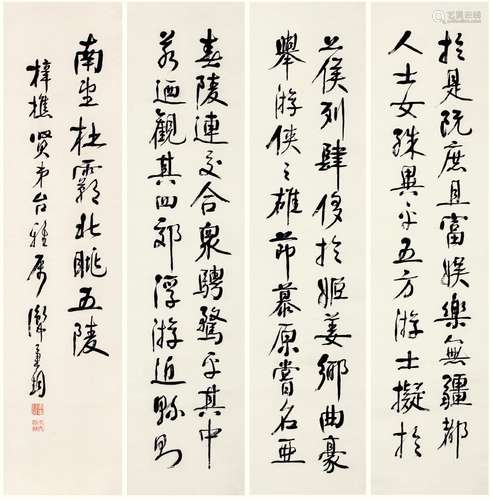 於是既庶且富娱樂無疆都
人士女殊異乎五方游士擬於
公侯列肆侈於姬姜鄉曲豪
舉游俠之雄節慕原嘗名亞
春陵連交合衆騁騖乎其中
若迺觀其四郊浮游近縣則
南望杜霸北眺五陵
樵賢弟台雅屬